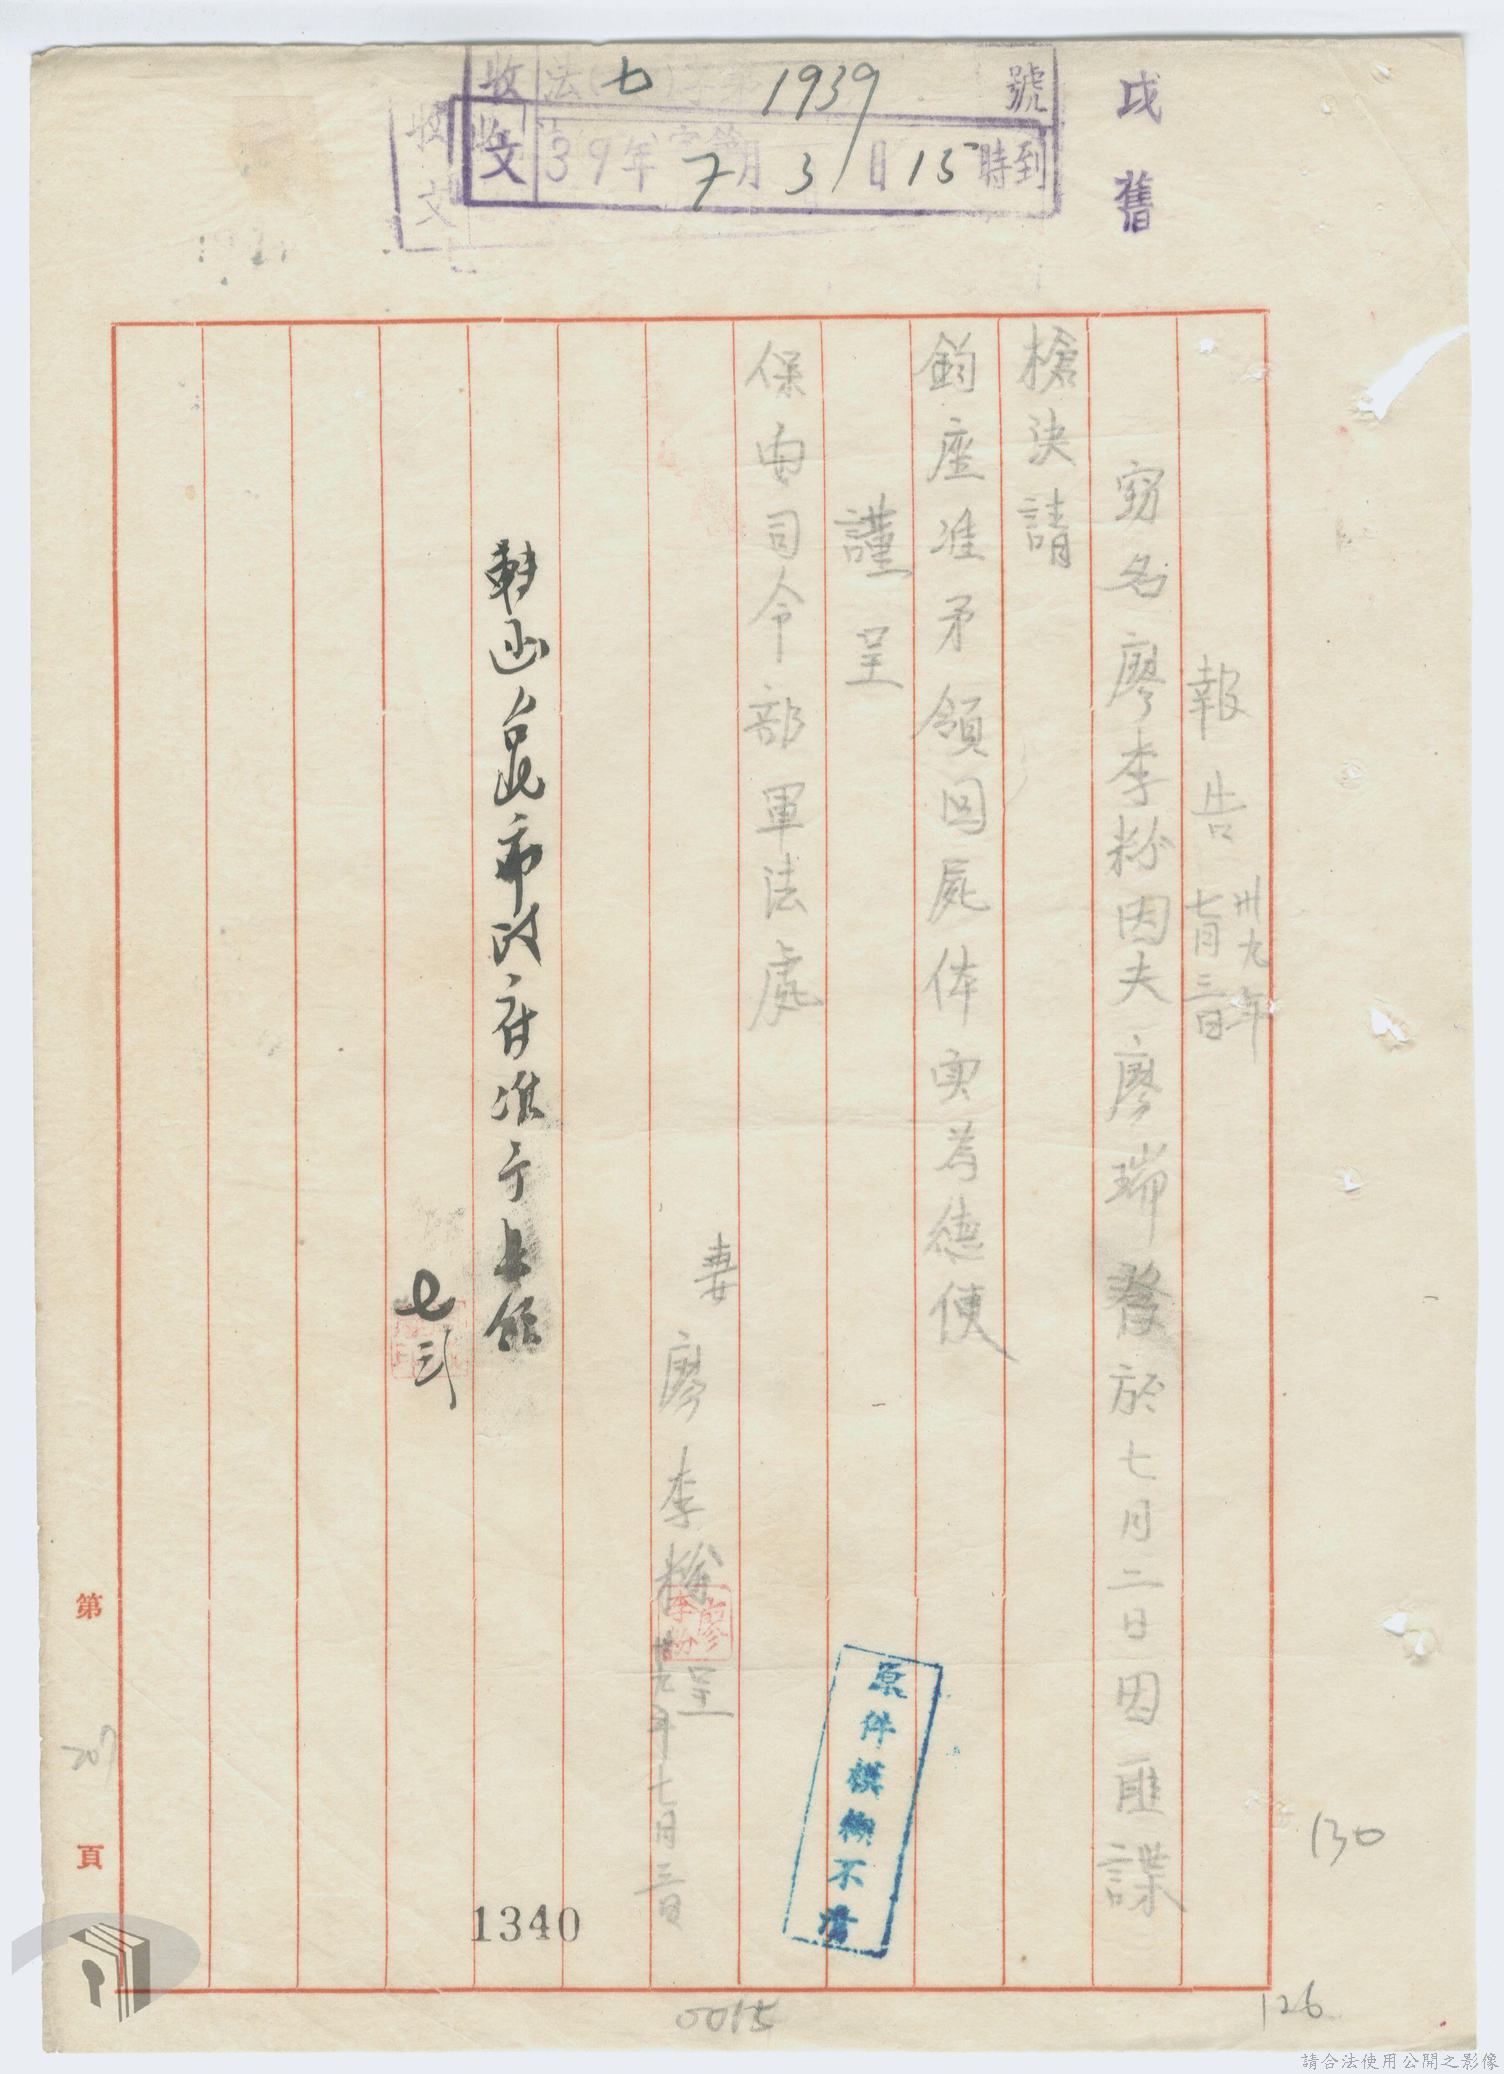 戌 舊
收文 法(七)字第 1939 號
39年 7月 3日 15時到
收文
報告 卅九年七月三日
窃名廖李粉因夫廖瑞發於七月二日因匪諜
槍決請
鈞座准矛領回屍体實為德便
謹呈
保安司令部軍法處
妻 廖李粉 呈
廖李粉
卅九年七月三日
轉函台北市政府准予具領
七、三
原件模糊不清
第 207 頁
1340
130
0015
126
請合法使用公開之影像